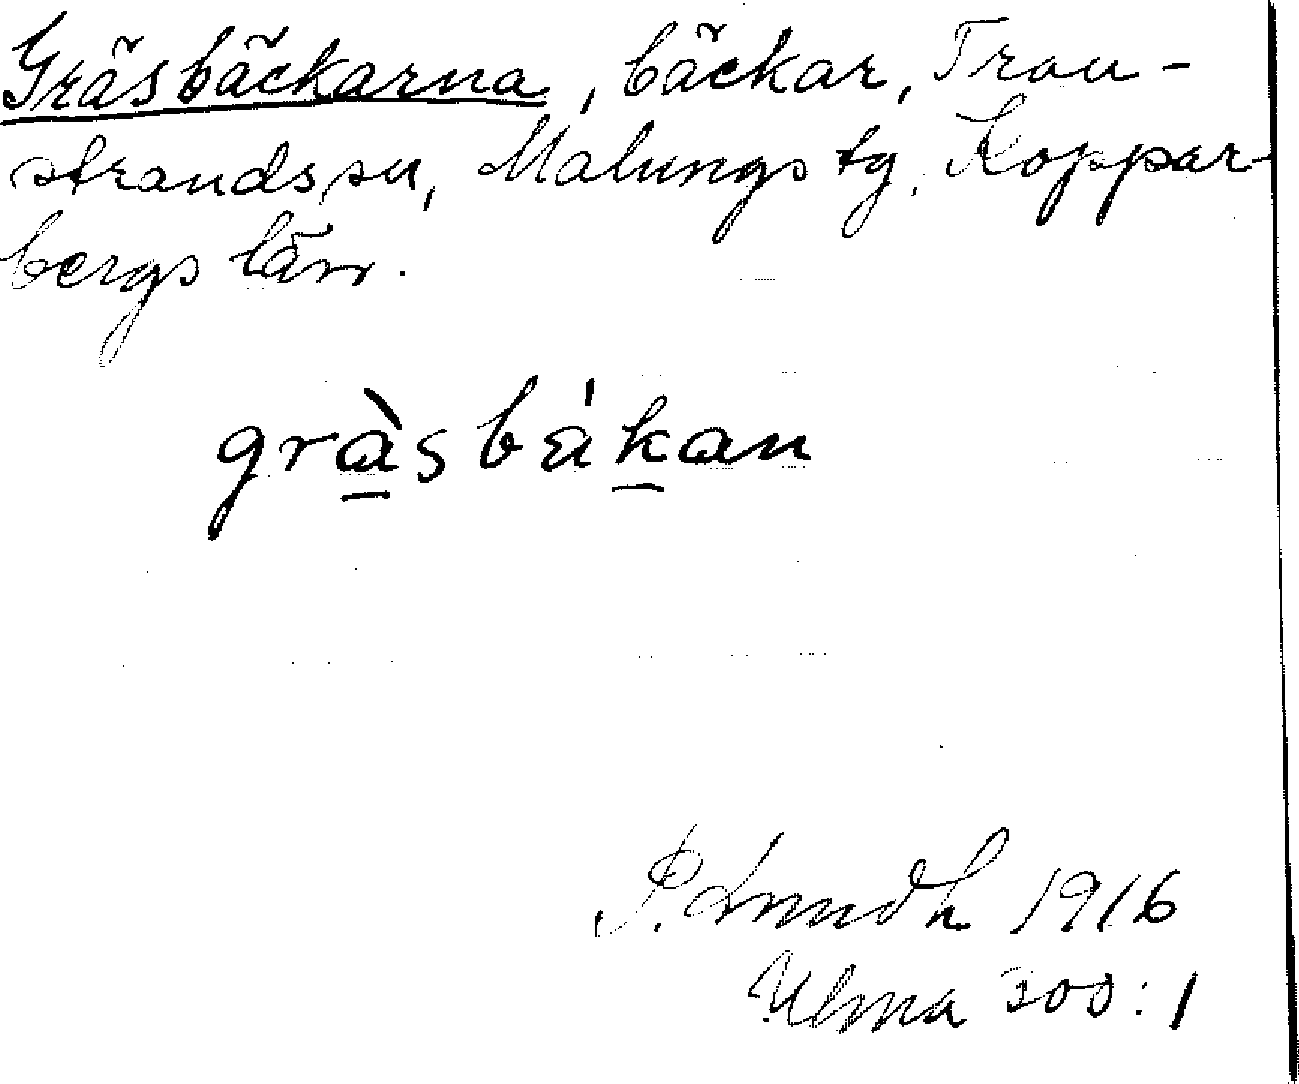 Gräsbäckarna, bäckar, Tran-
strands sn, Malungs tg. Koppar-
bergs län.
gràsbákan
P. Lundh 1916
Ulma 303:1